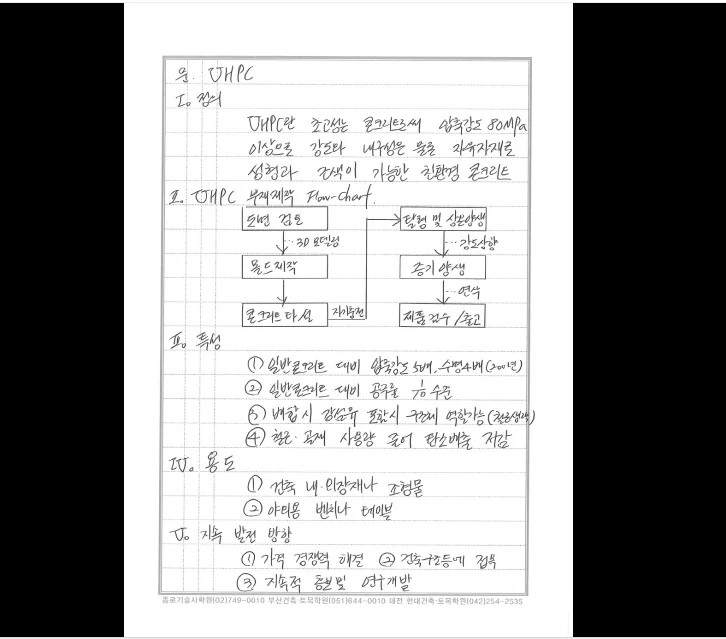 문. UHPC
I. 정의
UHPC란 초고성능 콘크리트로써 압축강도 80MPa
이상으로 강도와 내구성은 물론 자유자재로
성형과 조색이 가능한 친환경 콘크리트
II. UHPC 부재제작 Flow-chart.
도면 검토
탈형 및 상온양생
… 3D 모델링
… 강도상향
몰드제작
증기양생
… 연삭
콘크리트 타설
자기충전
제품검수/출고
III. 특성
① 일반콘크리트 대비 압축강도 5배, 수명4배(200년)
② 일반콘크리트 대비 공극률 1/10 수준
③ 배합시 강섬유 포함시 구조체 역할가능(철근생략)
④ 철근·골재 사용량 줄어 탄소배출 저감
IV. 용도
① 건축 내·외장재나 조형물
② 야외용 벤치나 테이블
V. 지속 발전 방향
① 가격 경쟁력 해결 ② 건축구조등에 접목
③ 지속적 홍보및 연구개발
종로기술사학원(02)749-0010 부산건축·토목학원(051)644-0010 대전 현대건축·토목학원(042)254-2535